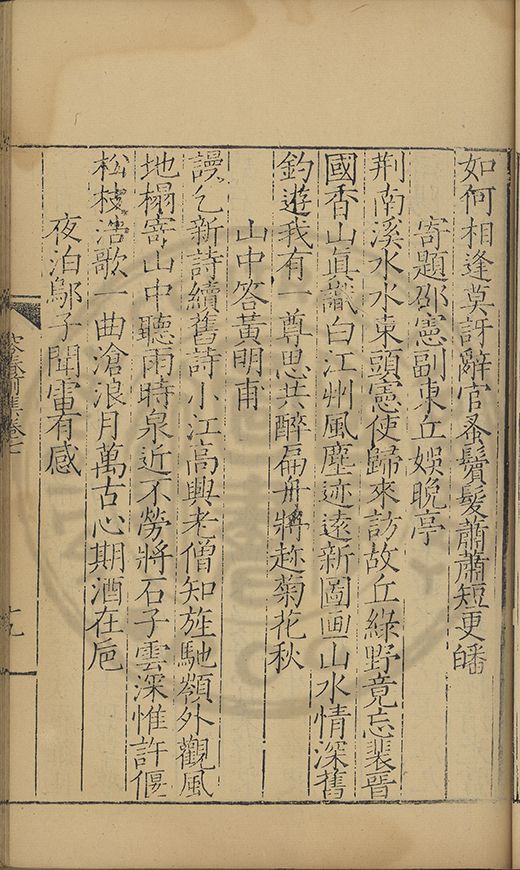 如何相逢莫訝辭官蚤鬢髮蕭蕭短更皤
寄題邵憲副東丘娛晚亭
荆南溪水水東頭憲使歸來訪故丘綠野竟忘裴晋
國香山眞識白江州風塵迹遠新圖画山水情深舊
釣遊我有一尊思共醉扁舟將趂菊花秋
山中答黃明甫
謾乞新詩續舊詩小江高興老僧知旌馳嶺外觀風
地榻寄山中聽雨時泉近不勞將石子雲深惟許偃
松枝浩歌一曲滄浪月萬古心期酒在巵
夜泊鄔子聞雷有感
十九